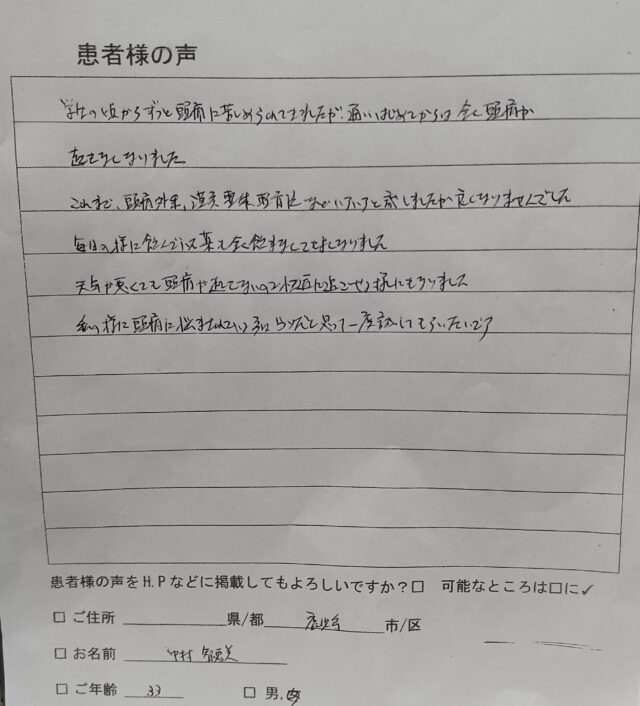 患者様の声
学生の頃からずっと頭痛に苦しめられてきましたが、通いはじめてからは全く頭痛が
起きなくなりました
これまで、頭痛外来、漢方、整体、電気など いろいろと試しましたが良くなりませんでした
毎日の様に飲んでいた薬も全く飲まなくてよくなりました
天気が悪くても頭痛がおきないので快適に過ごせる様にもなりました
私の様に頭痛に悩まされている方に と思って一度試してもらいたいです
患者様の声をH.Pなどに掲載してもよろしいですか?□ 可能なところは□に✓
□ ご住所 県/都 市/区
□ お名前 中村
□ ご年齢 33 □ 男,女